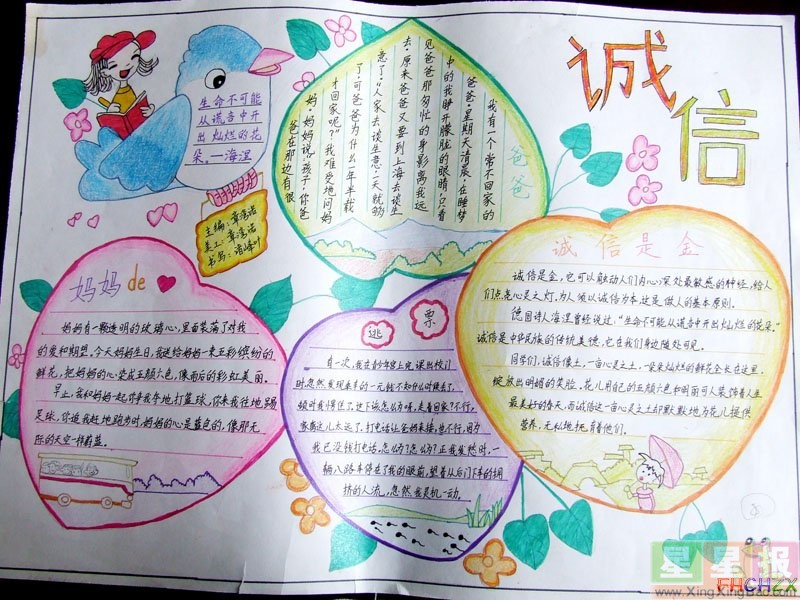 诚信
生命不可能
从谎言中开
出灿烂的花
朵。—海涅
主编:章湾诺
美工:章湾诺
书写:清峰叶
爸爸
我有一个常不回家的
爸爸。星期天清晨,在睡梦
中的我睁开朦胧的眼睛,只看
见爸爸那匆忙的身影离我远
去,原来爸爸又要到上海去谈生
意了。“人家去谈生意,一天就够
了,可爸爸为什么一年半载
才回家呢?”我难受地问妈
妈。妈妈说:“孩子,你爸
爸在那边有很
妈妈de
妈妈有一颗透明的玻璃心,里面装满了对我
的爱和期望。今天妈妈生日,我送给妈妈一束五彩缤纷的
鲜花,把妈妈的心染成五颜六色,像雨后的彩虹美丽。
早上,我和妈妈一起你争我夺地打篮球,你来我往地踢
足球,你追我赶地跑步时,妈妈的心是蓝色的,像那无
际的天空一样蔚蓝。
逃票
有一次,我在青少年宫上完课出校门
时,忽然发现
顿时我惊慌了,这下该怎么办呀,走着回家?不行,
家离这儿太远了。打电话让爸妈来接,也不行,因为
我已没钱打电话,怎么办?怎么办?正我发愁时,一
辆八路车停在了我的眼前,望着从后门下车的拥
挤的人流,忽然我灵机一动,
诚信是金
诚信是金,它可以触动人们内心深处最敏感的神经,给人
们点亮心灵之灯,为人须以诚信为本,这是做人的基本原则。
德国诗人海涅曾经说过:“生命不可能从谎言中开出灿烂的花朵。”
诚信是中华民族的传统美德,它在我们身边随处可见。
同学们,诚信像土,一亩心灵之土,一朵朵灿烂的鲜花全长在这里,
绽放出明媚的笑脸。花儿用自己的五颜六色和明丽可人装饰着人生
最美好的春天,而诚信这一亩心灵之土却默默地为花儿提供
营养,无私地抚育着他们。
星星报
FHCHZX
www.XingXingBao.com